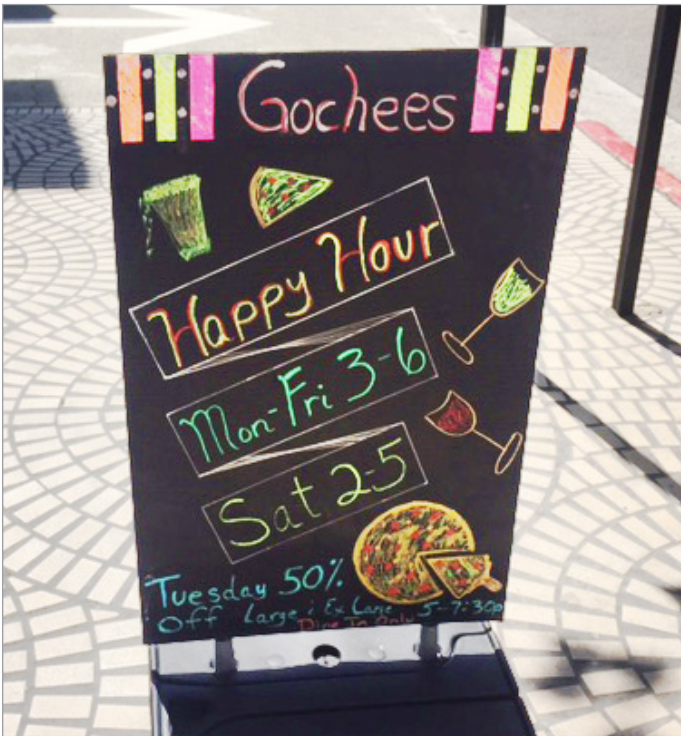 Gochees
Happy Hour
Mon-Fri 3-6
Sat 2-5
Tuesday 50%
Off Large & Ex Large 5-7:30p
Dine In Only